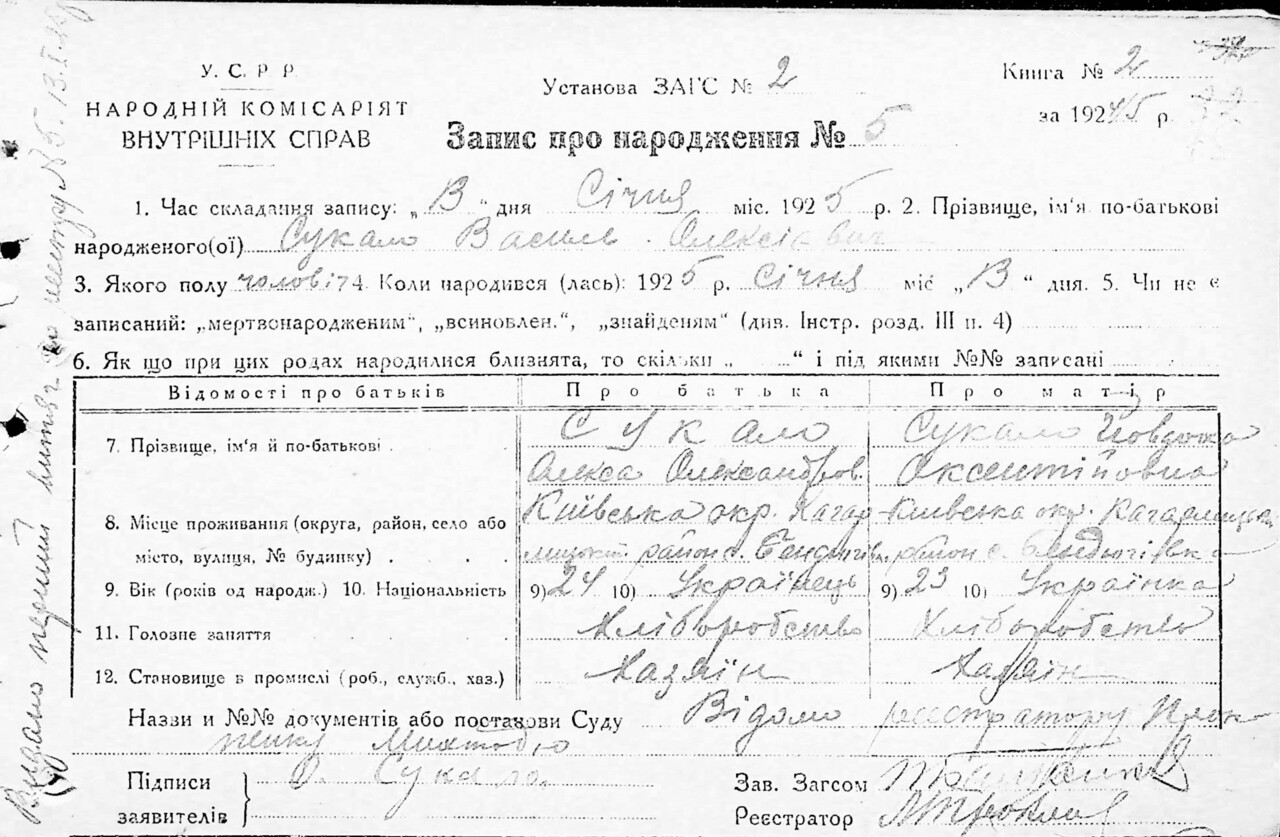 У. С. Р Р.
НАРОДНІЙ КОМІСАРІЯТ
ВНУТРІШНІХ СПРАВ
Установа ЗАГС № 2
Запис про народження № 5
Книга № 2
за 1924/5 р.
1. Час складання запису: „ 13 “ дня Січня міс. 1925 р. 2. Прізвище, ім'я по-батькові
народженого(ої) Сукало Василь Олексієвич
3. Якого полу чоловіч 4. Коли народився (лась): 1925 р. Січня міс „ 13 “ дня. 5. Чи не є
записаний: „мертвонародженим“, „всиновлен.“, „знайденям“ (див. Інстр. розд. III п. 4)
6. Як що при цих родах народилися близнята, то скільки „ “ і під якими №№ записані
Відомості про батьків Про батька Про матір
7. Прізвище, ім'я й по-батькові Сукало Сукало Йовдоха
Олекса Олександров. Оксентійовна
8. Місце проживання (округа, район, село або Київська окр. Кагар- Київська окр. Кагарлицьк
місто, вулиця, № будинку) район с. район с. Бендюгівка
9. Вік (років од народж.) 10. Національність 9) 24 10) Українець 9) 23 10) Українка
11. Головне заняття Хліборобство Хліборобство
12. Становище в промислі (роб., служб., хаз.) Хазяїн Хазяїн
Назви и №№ документів або постанови Суду Відомо реєстратору
Підписи Сукало
заявителів
Зав. Загсом
Реєстратор
Видано № 5 13.I.